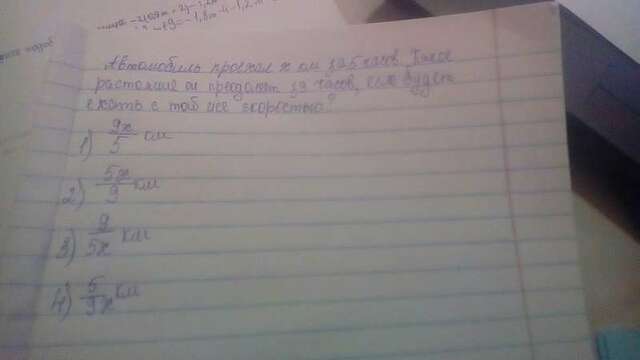 Автомобиль проехал x км за 5 часов. Какое
растояние он преодолеет за 9 часов, если будет
ехать с той же скоростью?
1) 9x/5 км
2) 5x/9 км
3) 9/5x км
4) 5/9x км